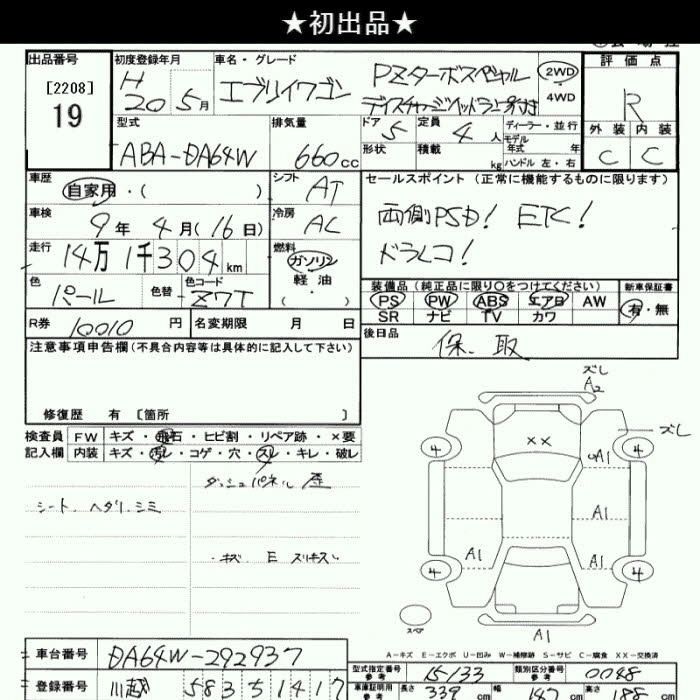 ★初出品★
出品番号
[2208]
19
初度登録年月
H
20 5月
車名・グレード
エブリイワゴン
PZターボスペシャル
ディスチャージヘッドランプ付き
2WD
・
4WD
評価点
R
外装 内装
C C
型式
ABA-DA64W
排気量
660cc
ドア 5
定員 4人
ディーラー・並行
モデル
年式 年
形状
積載 kg
ハンドル 左・右
車歴
自家用・( )
シフト AT
セールスポイント (正常に機能するものに限ります)
両側PSD! ETC!
ドラレコ!
車検
9年 4月(16日)
冷房 AC
走行
14万 1千304km
燃料
ガソリン
軽油
( ・ )
色
パール
色替
色コード
Z7T
装備品 (純正品に限り○をつけてください)
新車保証書
PS PW ABS エアB AW
SR ナビ TV カワ
有・無
R券 10010円
名変期限 月 日
後日品
保、取
注意事項申告欄(不具合内容等は具体的に記入して下さい)
修復歴 有 [箇所 ]
検査員 FW キズ・飛石・ヒビ割・リペア跡・×要
記入欄 内装 キズ・汚レ・コゲ・穴・スレ・キレ・破レ
シート、ヘタリ、シミ
ダッシュパネル 歪
・キズ E スリキズ
ズレ
A2
ズレ
××
4 4
A1
A1
A1 A1
4 4
スペア
A1
A-キズ E-エクボ U-凹み W-補修跡 S-サビ C-腐食 XX-交換済
車台番号 DA64W-292937
登録番号 川越 583 5 1417
型式指定番号
参考
15133
類別区分番号
参考
0048
車庫証明用
参考
長さ 339cm
幅 147cm
高さ 188cm